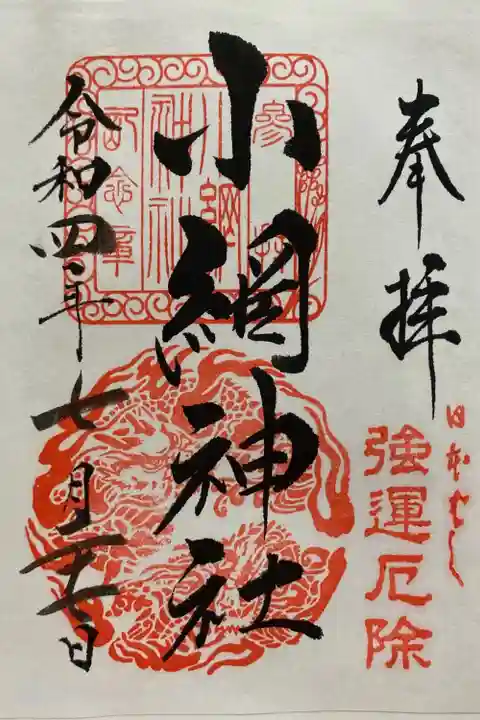 奉拝
日本ばし
強運厄除
小網神社
参拝
小網神社
記念章
令和四年七月二十七日